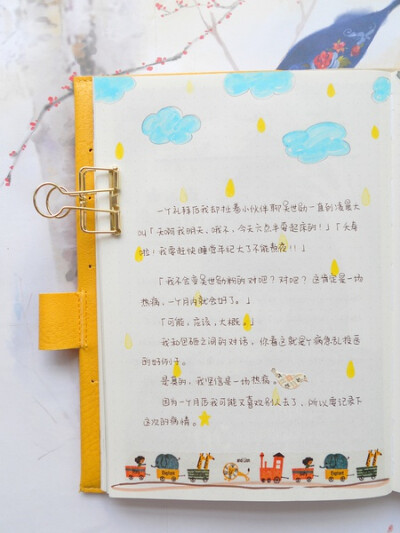 一个礼拜后我却拉着小伙伴聊吴世勋一直到清晨大
叫「天啊我明天、哦不，今天六点半要起床的！」「长身
啦！我要赶快睡觉年纪大了不能熬夜！！」
「我不会变吴世勋粉的对吧？对吧？这肯定是一场
热病，一个月内就会好了。」
「可能，应该，大概。」
我和思穗之间的对话，你看这就是个病急乱投医
的好例子。
是的，我坚信是一场热病
因为一个月后我可能又喜欢别人去了，所以要记录下
这次的病情。